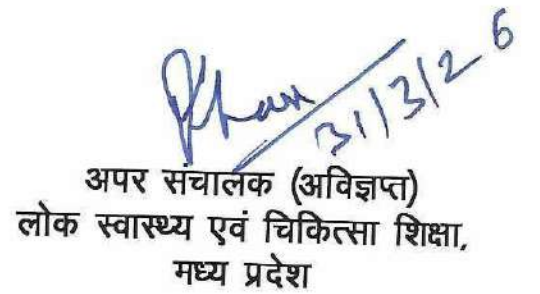 31/3/26
अपर संचालक (अविज्ञप्त)
लोक स्वास्थ्य एवं चिकित्सा शिक्षा,
मध्य प्रदेश